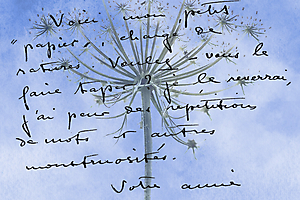 Voici mon petit
"papier", chargé de
ratures Voulez-vous le
faire taper ? je le reverrai,
j'ai peur des répétitions
de mots et autres
monstruosités.
Votre amie